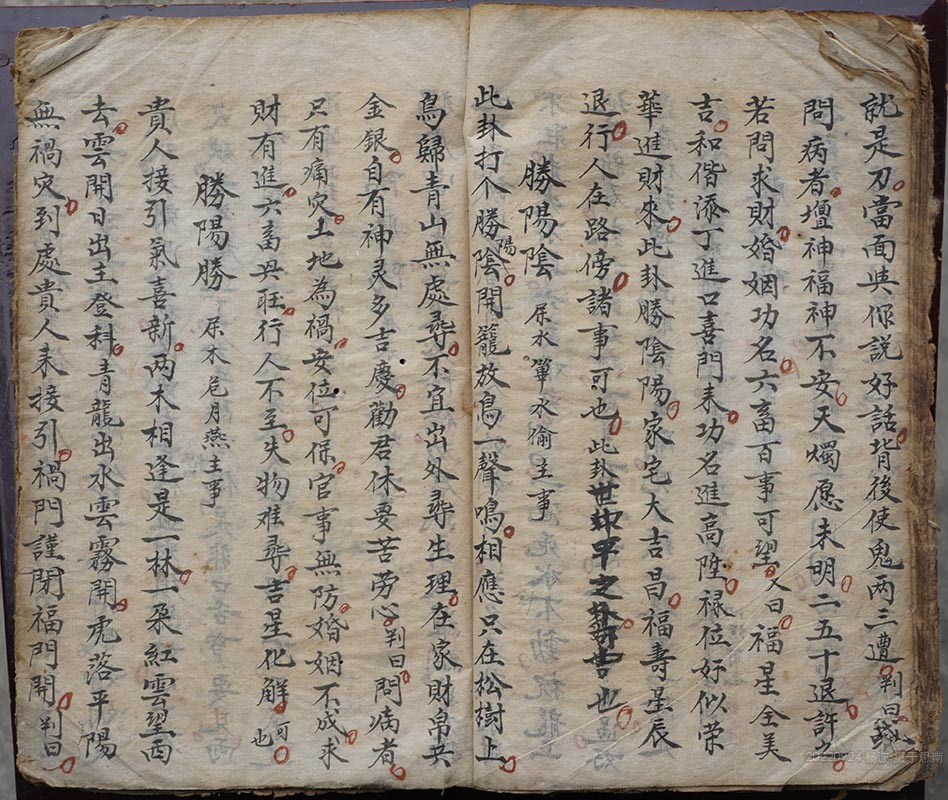 就是刀當面與你説好話背後使鬼两三遭判曰
問病者壇神福神不安天燭愿未明二五十退許
若問求財婚姻功名六畜百事可望又曰福星全美
吉和偕添丁進口喜門来功名進高陞禄位好似荣
華進財來此卦勝陰陽家宅大吉昌福壽星辰
退行人在路傍諸事可也此卦
勝陽陰 尿水箪水偷主事
此卦打个勝陽陰開籠放鳥一聲鳴相應只在松樹上
鳥歸青山無處尋不宜出外尋生理在家財帛共
金銀自有神灵多吉慶勸君休要苦劳心判曰問病者
只有痛灾土地為禍安位可保官事無防婚姻不成求
財有進六畜興旺行人不至失物难尋吉星化解可也
勝陽勝 尿木危月燕主事
貴人接引氣喜新两木相逢是一林一朶紅雲望西
去雲開日出主登科青龍出水雲霧開虎落平陽
無禍灾到處貴人来接引禍門謹閉福門開判曰